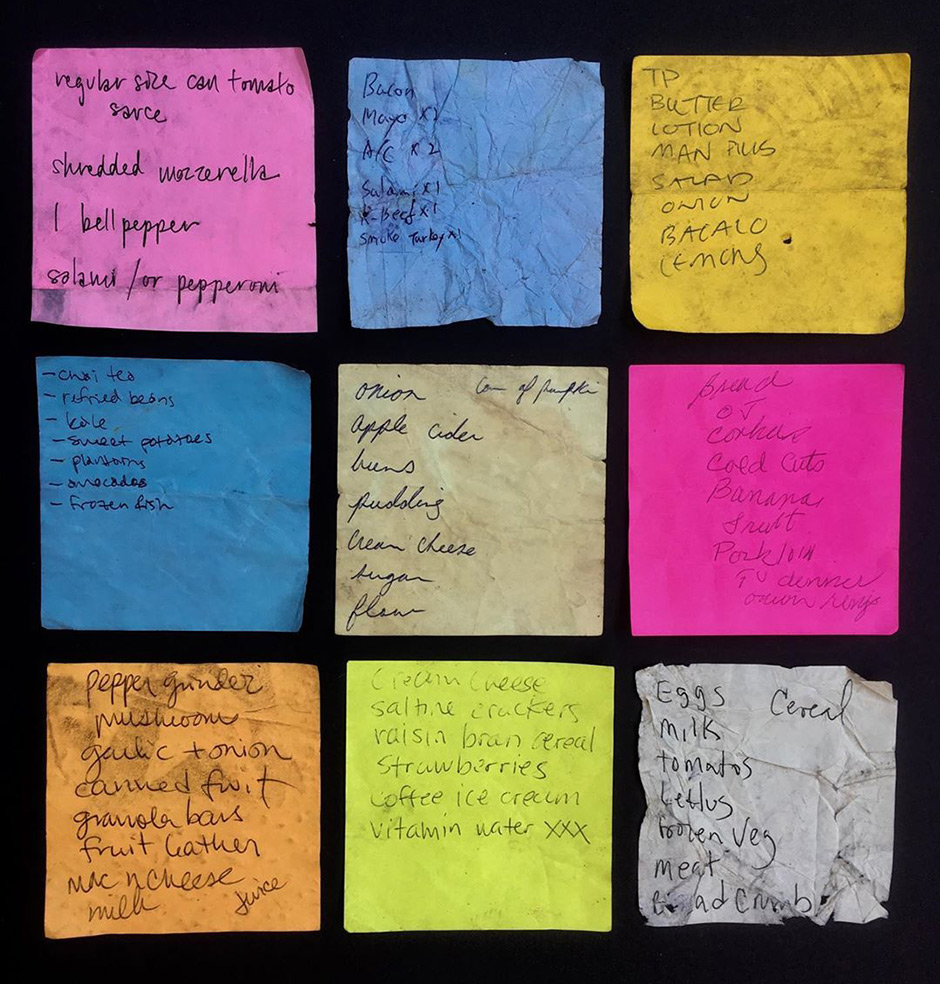 regular size can tomato
sauce
shredded mozzerella
1 bell pepper
salami /or pepperoni
Bacon
Mayo x1
A/C x 2
Salami x1
R-Beef x1
Smoke Turkey x1
TP
BUTTER
LOTION
MAN PILLS
SALAD
ONION
BACALO
LEMONS
- chai tea
- refried beans
- kale
- sweet potatoes
- plantains
- avocados
- frozen fish
onion Can of pumpki
apple cider
buns
pudding
cream cheese
sugar
flour
Bread
OJ
Cold Cuts
Banana
fruit
Pork loin
TV dinner
onion rings
pepper grinder
mushroom
garlic + onion
canned fruit
granola bars
fruit leather
mac n cheese
milk juice
Cream Cheese
saltine crackers
raisin bran cereal
strawberries
coffee ice cream
vitamin water XXX
Eggs Cereal
milk
tomatos
Lettus
frozen Veg
meat
Bread Crumb